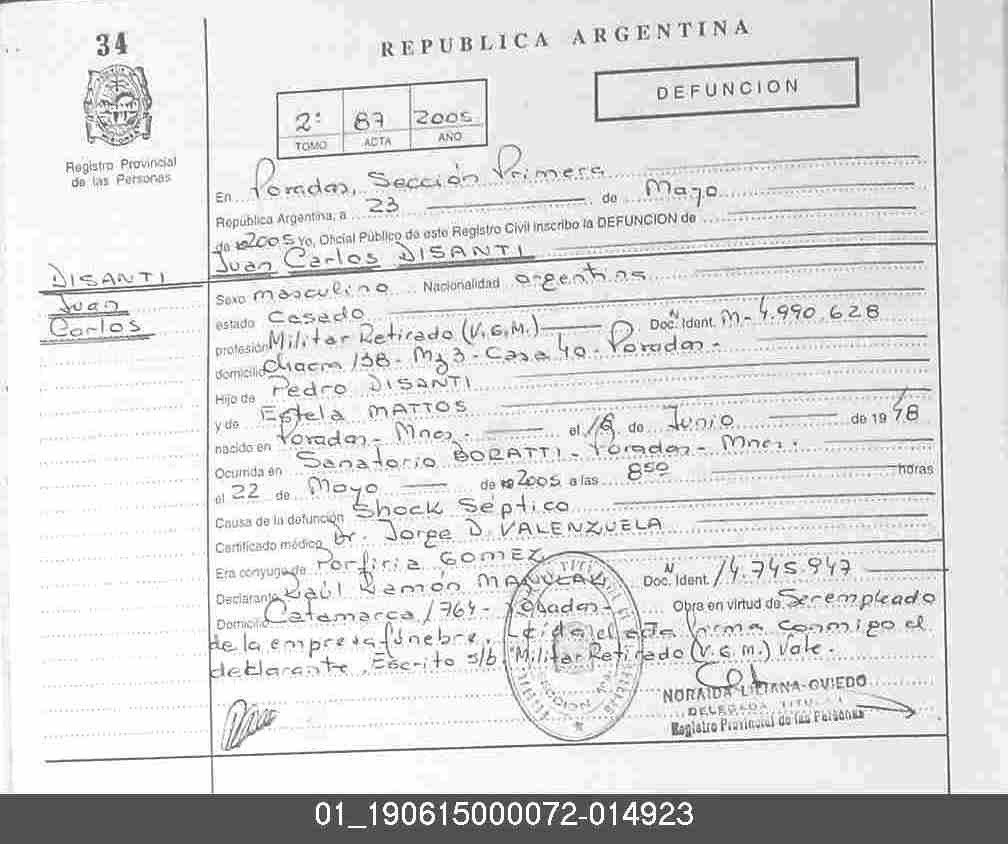 34
REPUBLICA ARGENTINA
DEFUNCION
2º 87 2005
TOMO ACTA AÑO
Registro Provincial
de las Personas
En Posadas, Sección Primera
República Argentina, a 23 de Mayo
de 2005 yo, Oficial Público de este Registro Civil inscribo la DEFUNCION de
Juan Carlos DISANTI
DISANTI
Juan
Carlos
Sexo masculino Nacionalidad argentina
estado Casado
profesión Militar Retirado (V.G.M.) Doc. Ident. M-4.990.628
domicilio Chacra 138 - Mz 3 - Casa 40 - Posadas -
Hijo de Pedro DISANTI
y de Estela MATTOS
nacido en Posadas - Mnes. el 16 de Junio de 1948
Ocurrida en Sanatorio BORATTI - Posadas - Mnes.
el 22 de Mayo de 2005 a las 8:50 horas
Causa de la defunción Shock Séptico
Certificado médico Dr. Jorge D. VALENZUELA
Era conyuge de Porfiria GOMEZ
Declarante Raúl Ramón Doc. Ident. 14.745.947
Domicilio Catamarca 1764 - Posadas - Obra en virtud de Ser empleado
de la empresa fúnebre. Leída el acta firma conmigo el
declarante. Escrito s/b "Militar Retirado (V.G.M.) Vale.
NORAIDA LILIANA OVIEDO
DELEGADA TITULAR
Registro Provincial de las Personas
01_190615000072-014923